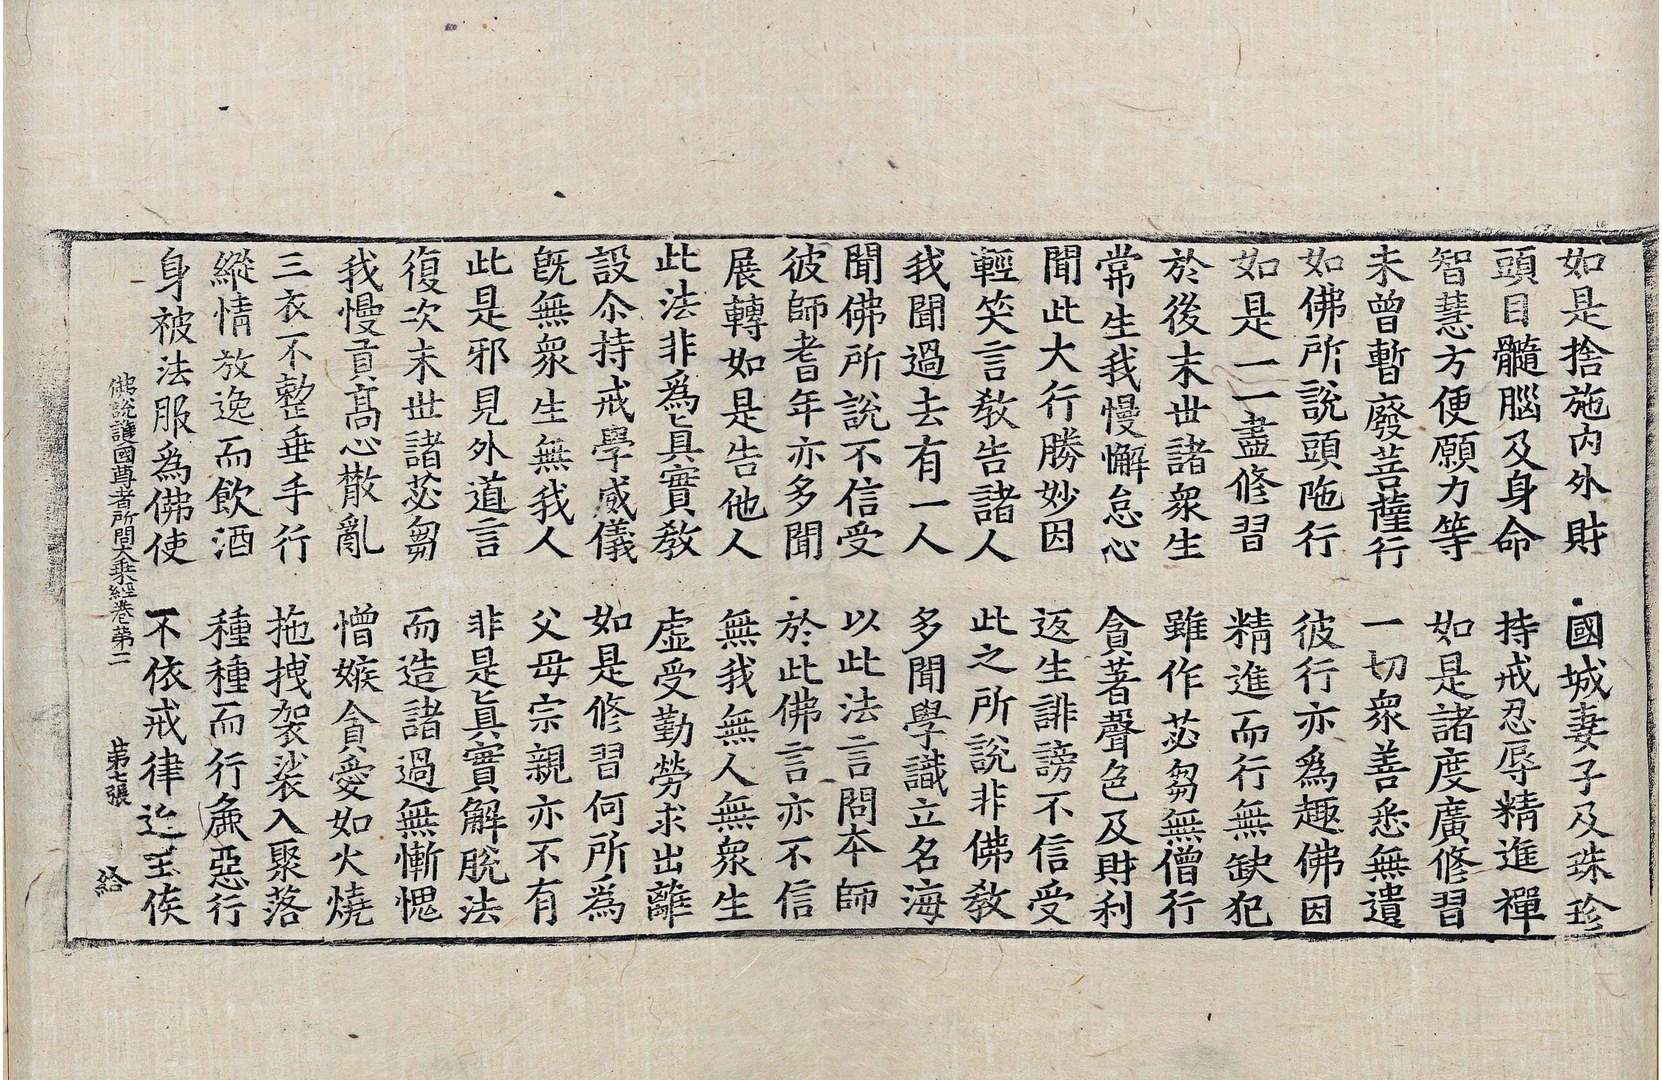 如是捨施內外財　國城妻子及珠珍
頭目髓腦及身命　持戒忍辱精進禪
智慧方便願力等　如是諸度廣修習
未曾暫廢菩薩行　一切衆善悉無遺
如佛所說頭陁行　彼行亦爲趣佛因
如是一一盡修習　精進而行無缺犯
於後末世諸衆生　雖作苾芻無僧行
常生我慢懈怠心　貪著聲色及財利
聞此大行勝妙因　返生誹謗不信受
輕笑言敎告諸人　此之所說非佛敎
我聞過去有一人　多聞學識立名海
聞佛所說不信受　以此法言問本師
彼師耆年亦多聞　於此佛言亦不信
展轉如是告他人　無我無人無衆生
此法非爲真實敎　虛受勤勞求出離
設尒持戒學威儀　如是修習何所為
旣無衆生無我人　父母宗親亦不有
此是邪見外道言　非是真實解脫法
復次末世諸苾芻　而造諸過無慚愧
我慢貢高心散亂　憎嫉貪愛如火燒
三衣不整垂手行　拖拽袈裟入聚落
縱情放逸而飮酒　種種而行麁惡行
身被法服爲佛使　不依戒律近王侯
佛說護國尊者所問大乘經卷第二　第七張　給